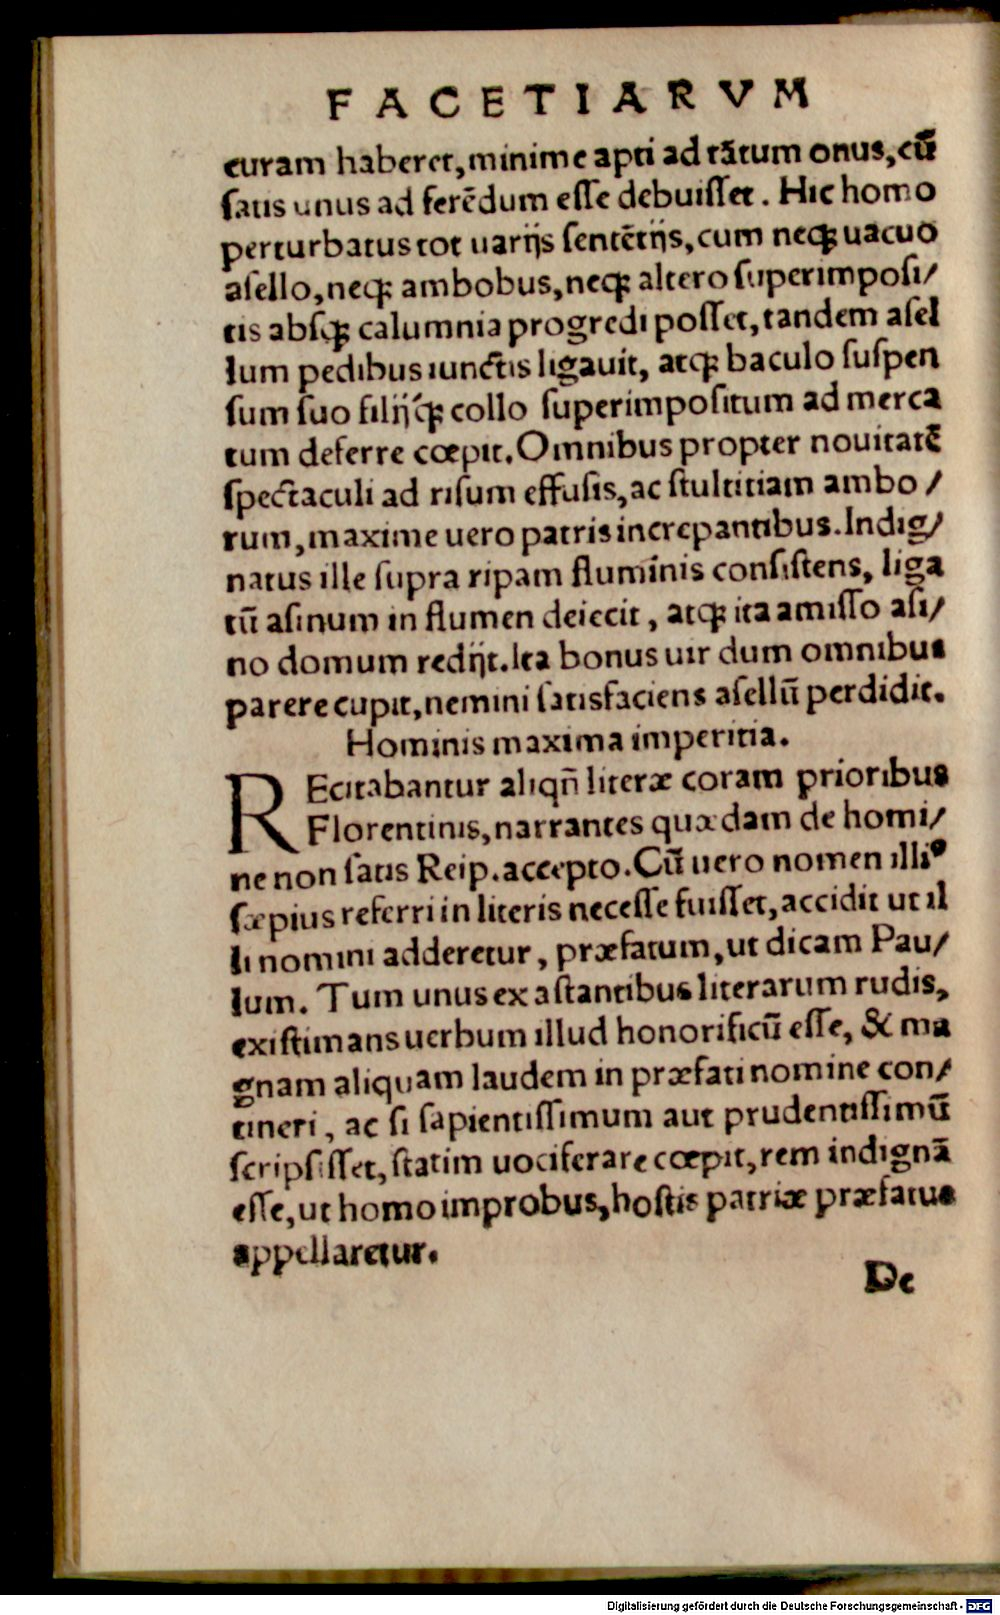 FACETIARVM
curam haberet, minime apti ad tātum onus, cū
ſatis unus ad ferēdum eſſe debuiſſet. Hic homo
perturbatus tot uarijs ſentētijs, cum neqꝫ uacuo
aſello, neqꝫ ambobus, neqꝫ altero ſuperimpoſi/
tis abſqꝫ calumnia progredi poſſet, tandem aſel
lum pedibus iunctis ligauit, atqꝫ baculo ſuſpen
ſum ſuo filijq́ꝫ collo ſuperimpoſitum ad merca
tum deferre cœpit. Omnibus propter nouitatē
ſpectaculi ad riſum effuſis, ac ſtultitiam ambo/
rum, maxime uero patris increpantibus. Indig/
natus ille ſupra ripam fluminis conſiſtens, liga
tū aſinum in flumen deiecit, atqꝫ ita amiſſo aſi/
no domum redijt. Ita bonus uir dum omnibus
parere cupit, nemini ſatisfaciens aſellū perdidit.
Hominis maxima imperitia.
REcitabantur aliqn̄ literæ coram prioribus
Florentinis, narrantes quædam de homi/
ne non ſatis Reip. accepto. Cū uero nomen illiꝰ
ſæpius referri in literis neceſſe fuiſſet, accidit ut il
li nomini adderetur, præfatum, ut dicam Pau/
lum. Tum unus ex aſtantibus literarum rudis,
exiſtimans uerbum illud honorificū eſſe, & ma
gnam aliquam laudem in præfati nomine con/
tineri, ac ſi ſapientiſſimum aut prudentiſſimū
ſcripſiſſet, ſtatim uociferare cœpit, rem indignā
eſſe, ut homo improbus, hoſtis patriæ præfatus
appellaretur.
De
Digitalisierung gefördert durch die Deutsche Forschungsgemeinschaft - DFG